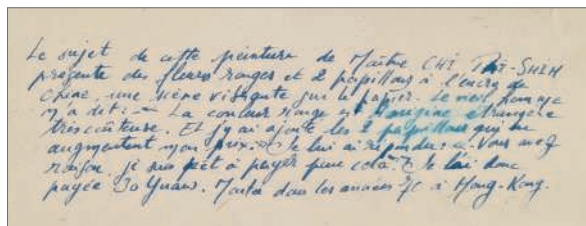 Le sujet de cette peinture de Maître CHI PAI-SHIH
présente des fleurs rouges et 2 papillons à l'encre de
chine, une scène vibrante sur le papier. Le vieil homme
m'a dit : - La couleur rouge est d'origine étrangère
très coûteuse. Et j'y ai ajouté les 2 papillons qui
augmentent mon prix. Je lui ai répondu : Vous avez
raison, je suis prêt à payer pour cela. Je l'ai donc
payée 30 Yuans. Monta dans les années 70 à Hong-Kong.